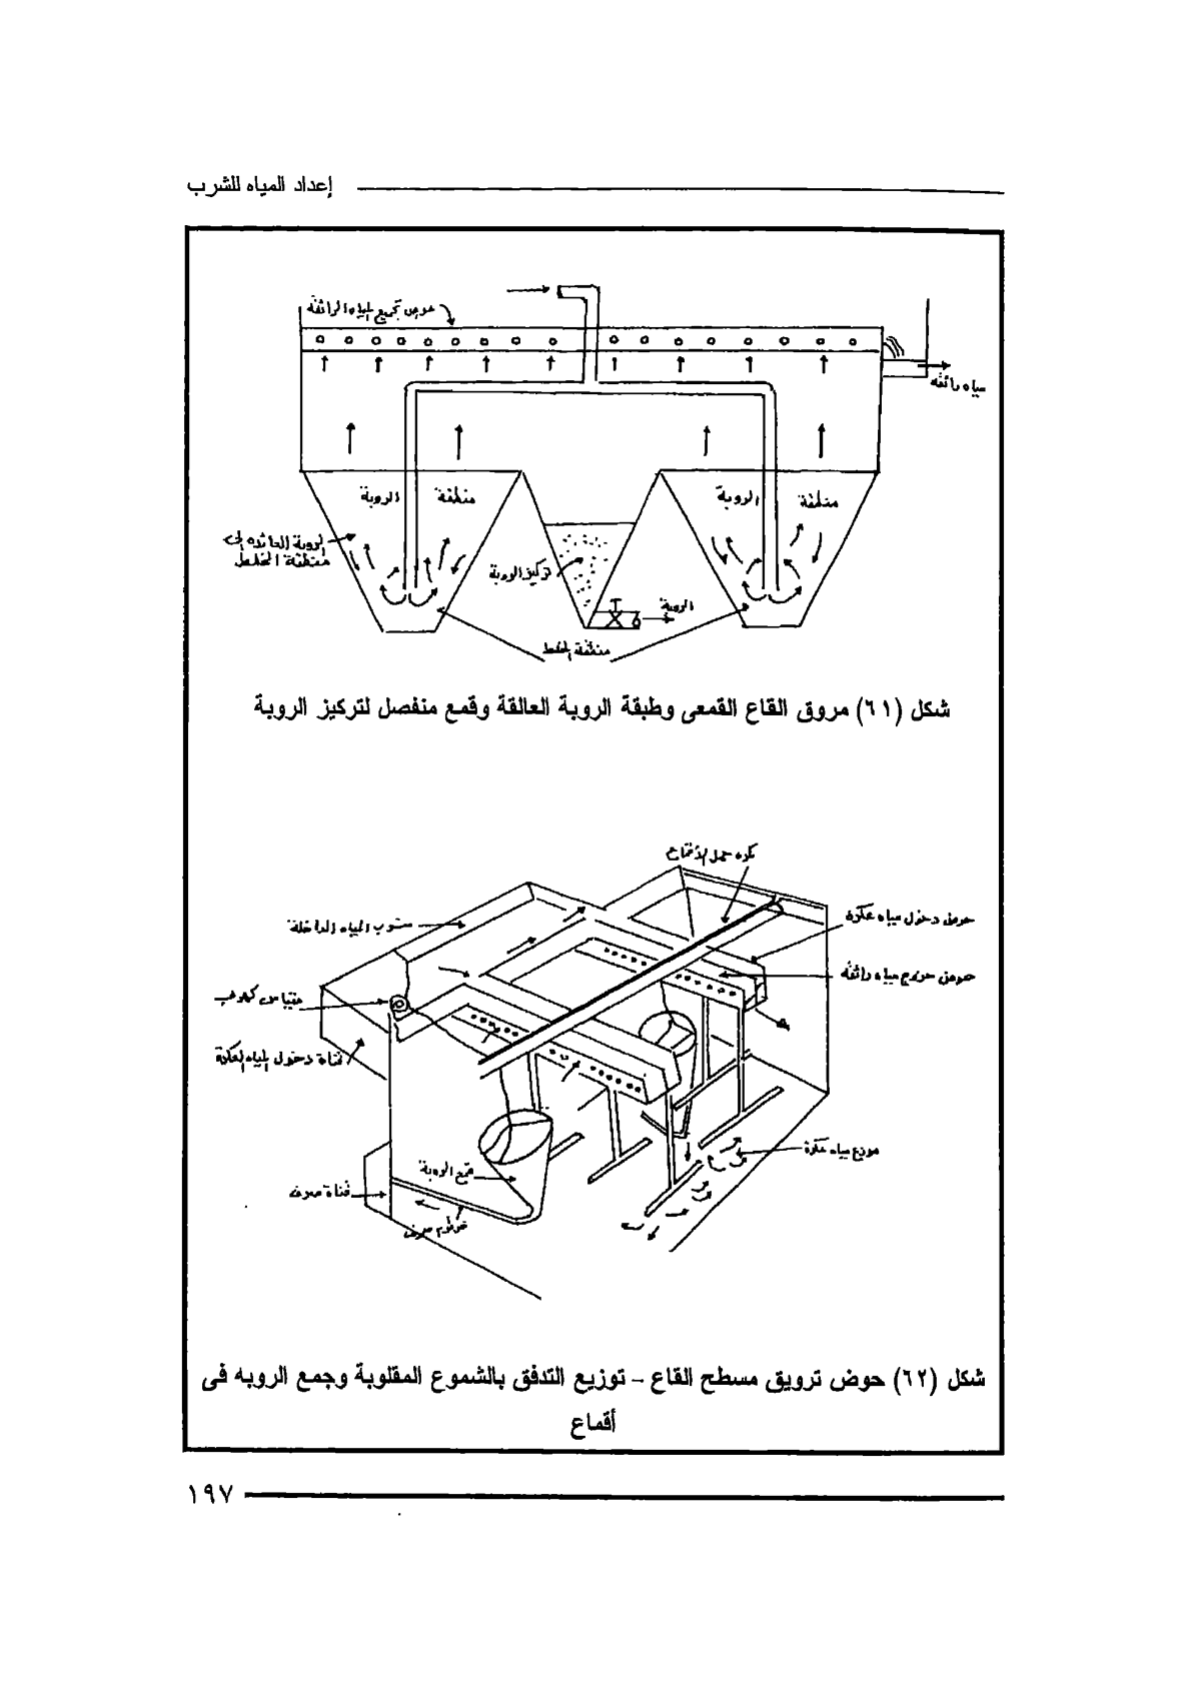 إعداد المياه للشرب
حوض تجميع المياه الرائقة
مياه رائقه
الروبة
منطقة
الروبة
منطقة
الروبة العائده إلى
منطقة الخلط
تركيز الروبة
الروبة
منطقة الخلط
شكل (٦١) مروق القاع القمعى وطبقة الروبة العالقة وقمع منفصل لتركيز الروبة
حمل الأقماع
حوض دخول مياه عكرة
منسوب المياه الداخلة
حوض خروج مياه رائقه
قناة دخول المياه العكرة
موزع مياه عكرة
قمع الروبة
قناة صرف
خرطوم صرف
شكل (٦٢) حوض ترويق مسطح القاع – توزيع التدفق بالشموع المقلوبة وجمع الروبه فى
أقماع
١٩٧